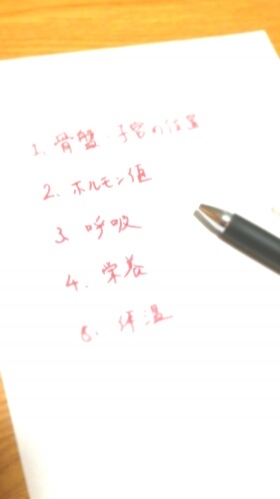 1. 骨盤・子宮の位置
2. ホルモン値
3. 呼吸
4. 栄養
5. 体温